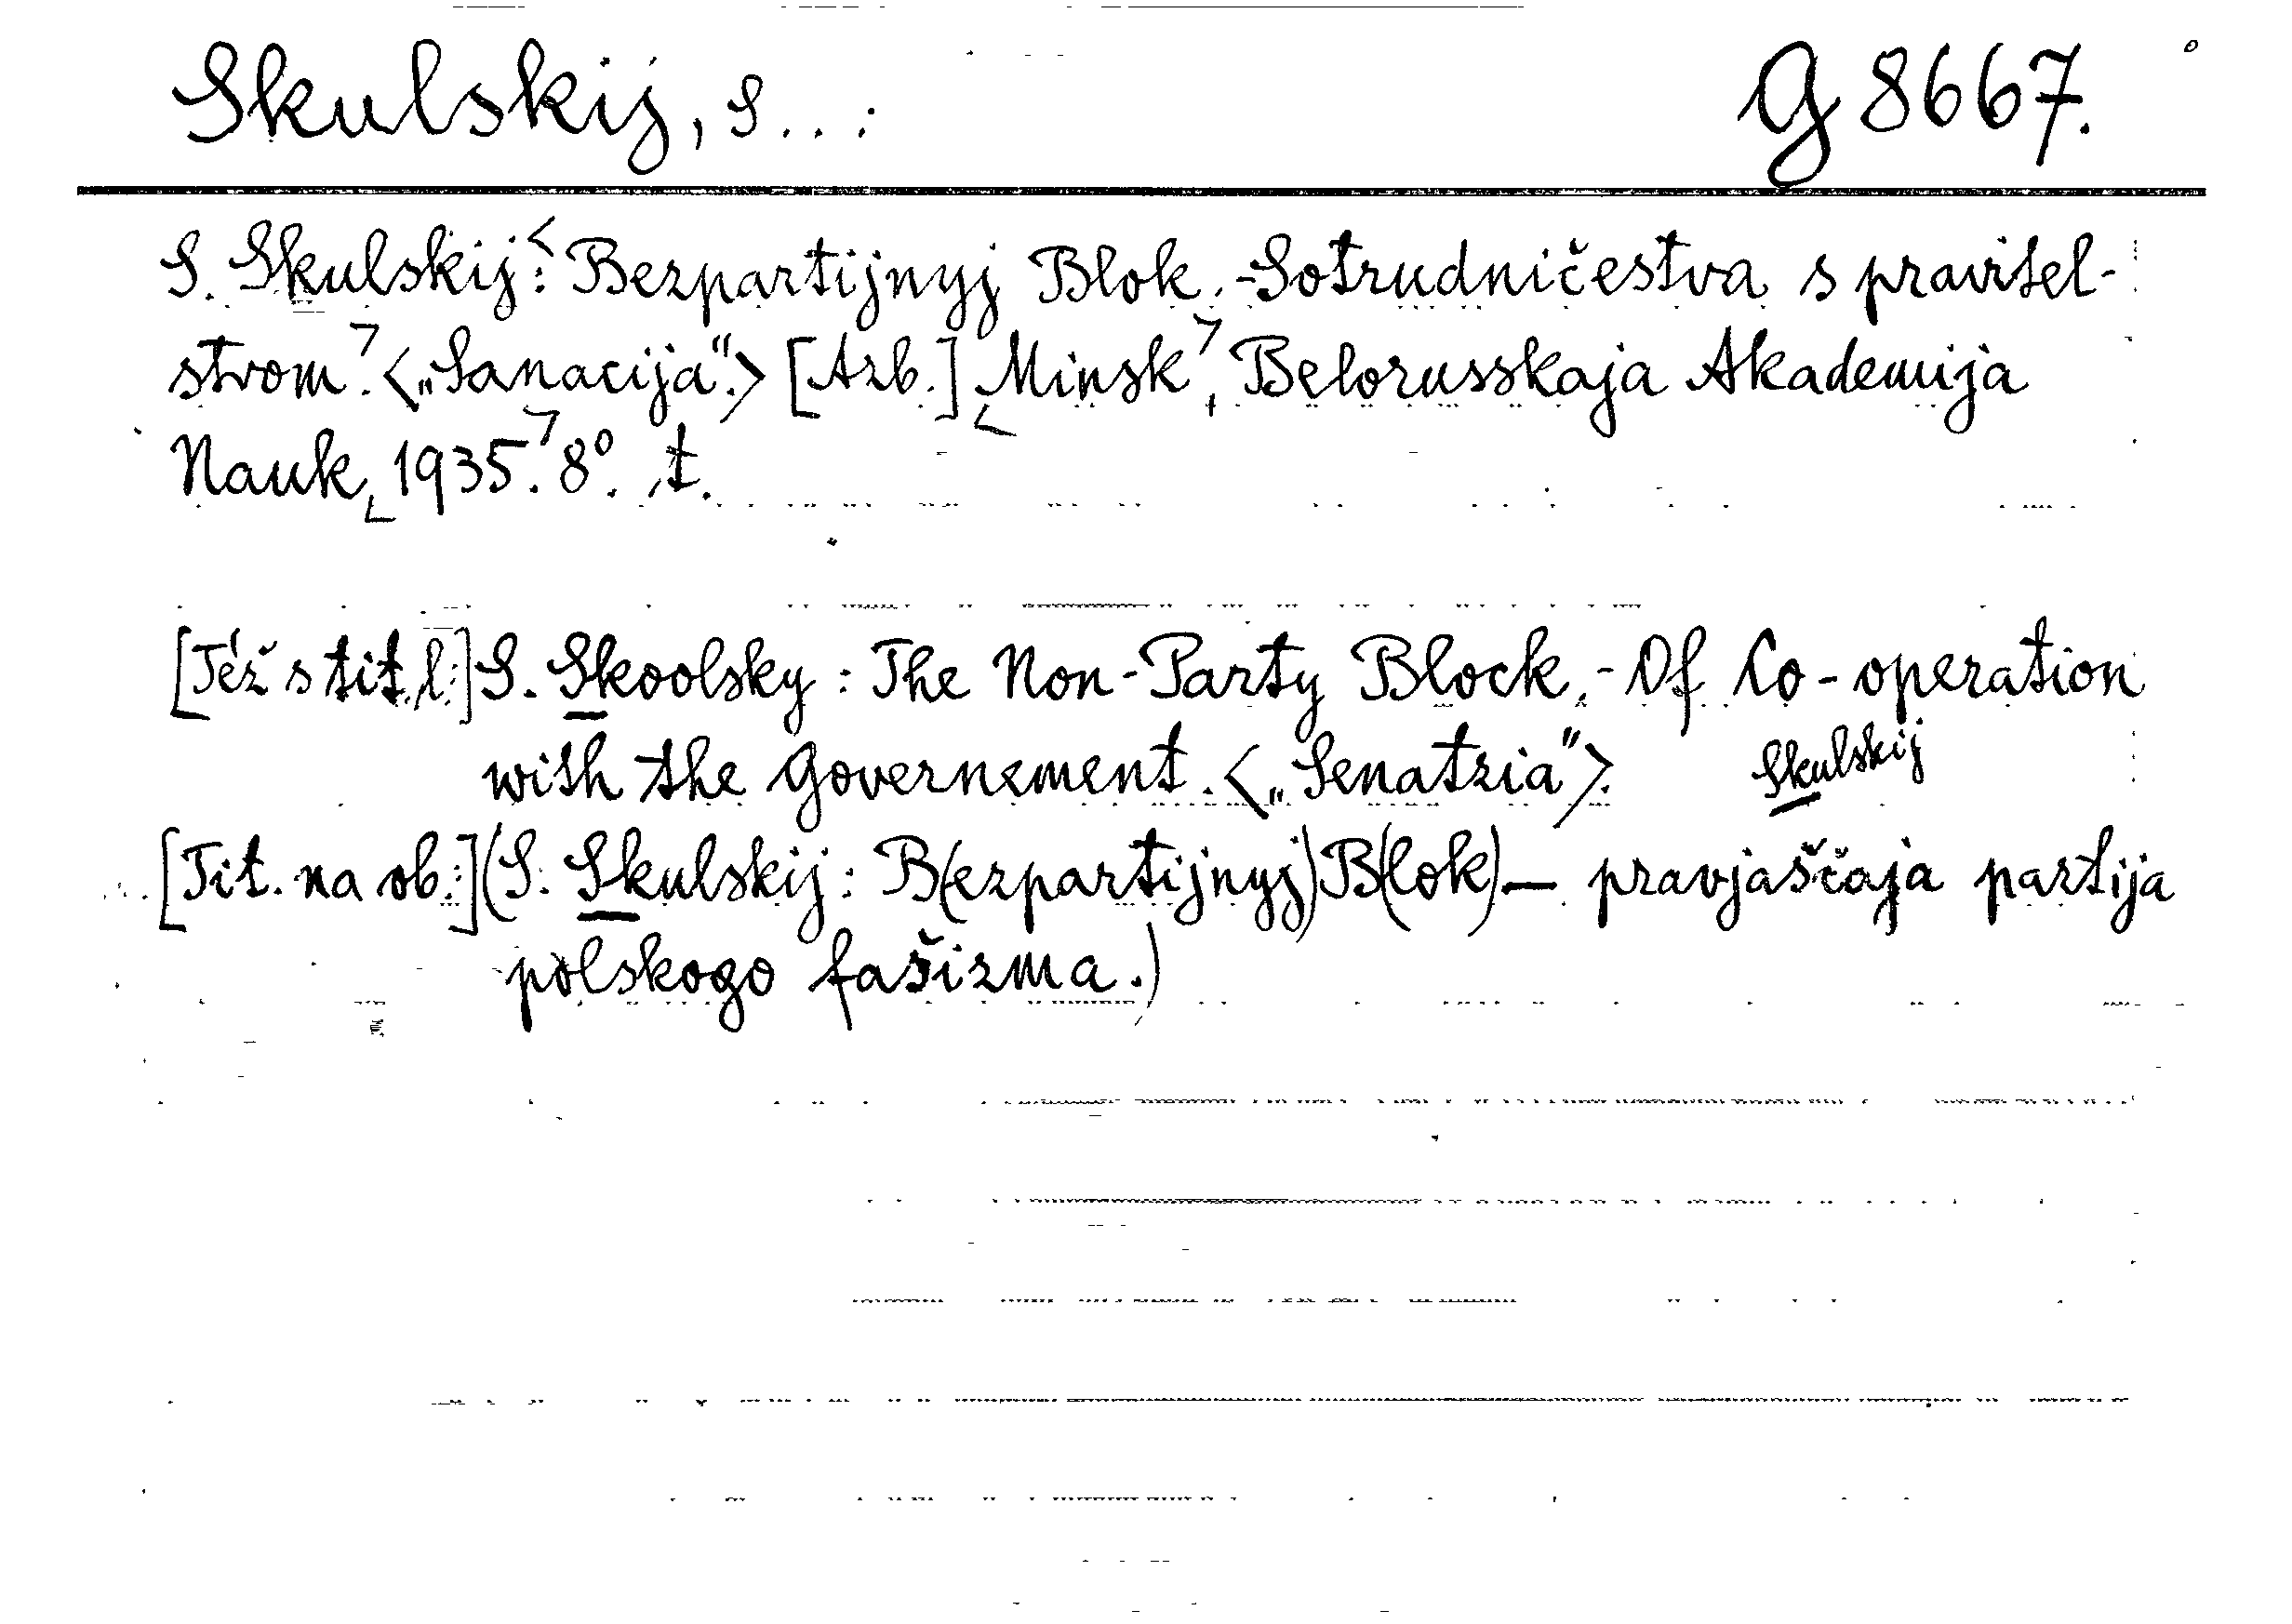 Skulskij, S...: G 8667.
S. Skulskij: <Bezpartijnyj Blok.-Sotrudničestva s pravitel-
stvom.> <„Sanacija“.> [Azb.] <Minsk>, Belorusskaja Akademija
Nauk, <1935.> 8°. t.
[Též s tit. l.:] S. Skoolsky: The Non-Party Block.- Of Co-operation
with the Governement. <„Senatzia“>. Skulskij
[Tit. na ob.:] (S. Skulskij: B(ezpartijnyj) B(lok).— pravjaščaja partija
polskogo fašizma.)